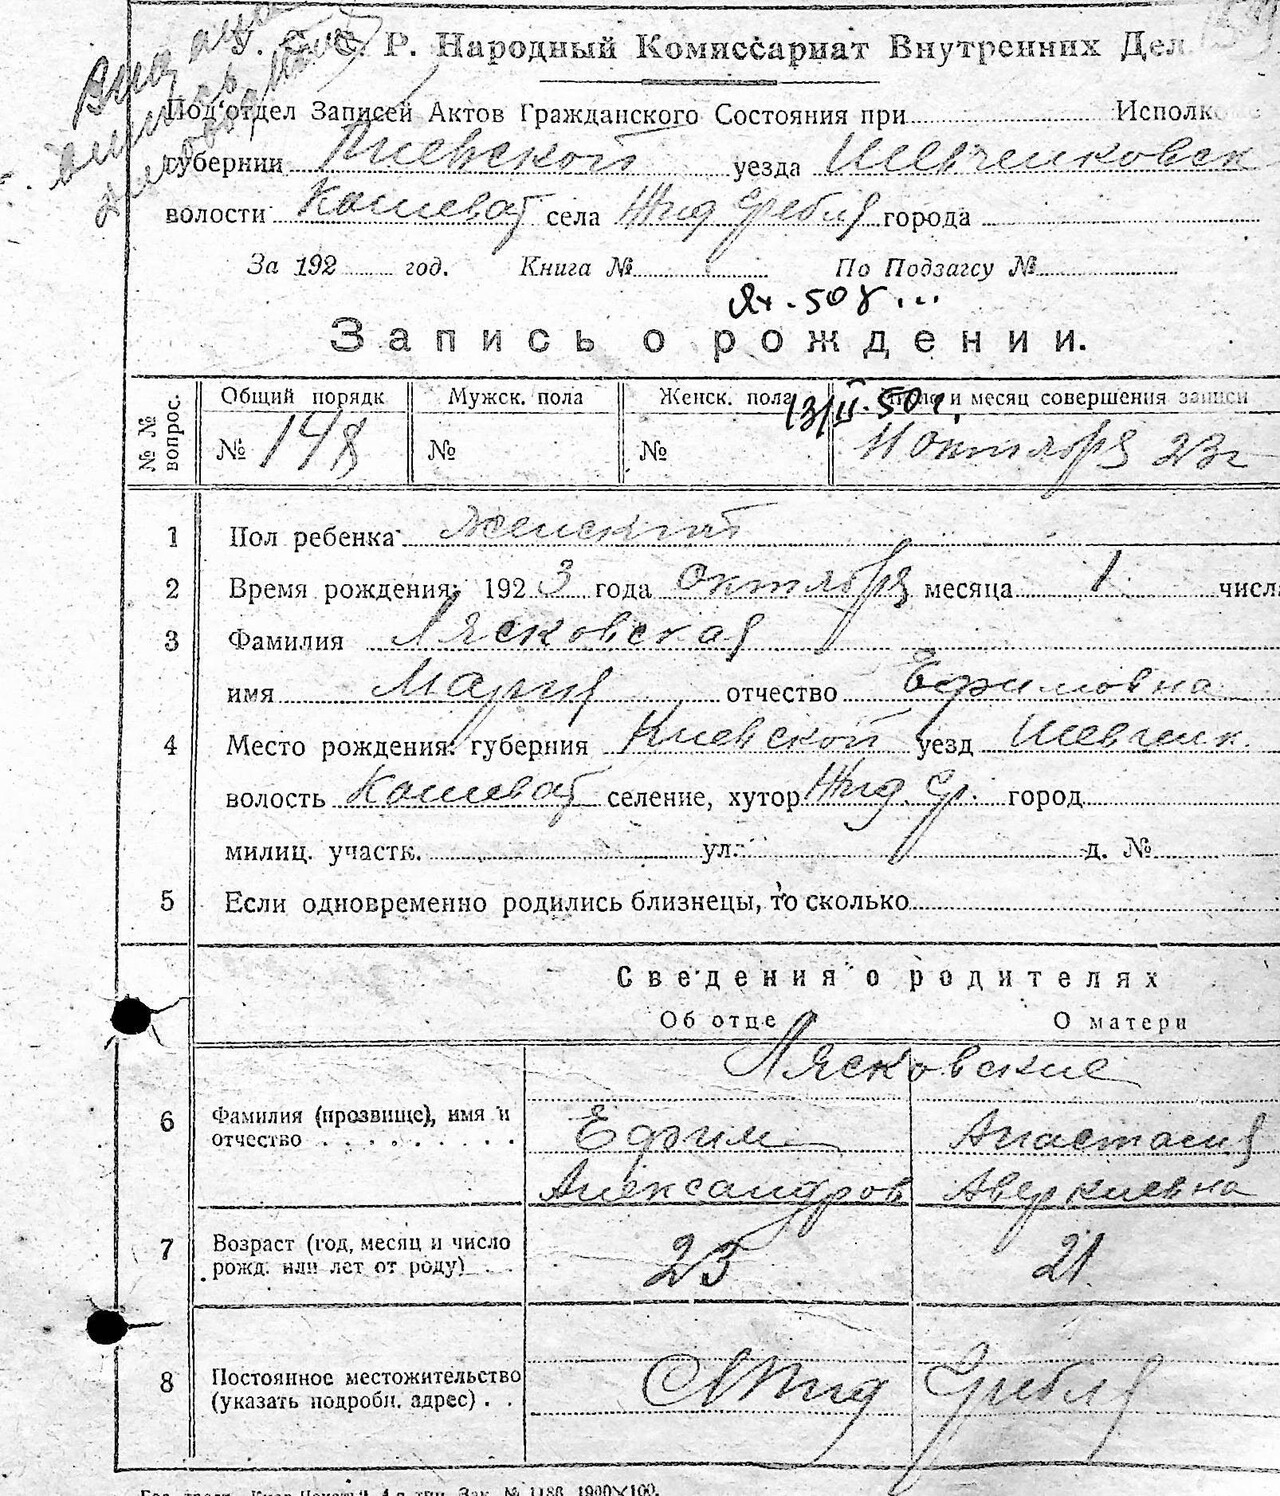 У. С. С. Р. Народный Комиссариат Внутренних Дел.
Под'отдел Записей Актов Гражданского Состояния при Исполко
губернии Киевской уезда Шевченковск
волости Кошеват села Жид Гребля города
За 192 год. Книга № По Подзагсу №
Запись о рождении.
№ № вопрос. Общий порядк Мужск. пола Женск. пола 13/II-50 г. и месяц совершения записи
№ 148 № № 11 октября 23 г
1 Пол ребенка Женский
2 Время рождения: 1923 года октября месяца 1 числа
3 Фамилия Лясковская
имя Мария отчество Ефимовна
4 Место рождения: губерния Киевской уезд Шевченк.
волость Кошеват селение, хутор Жид. Гр. город
милиц. участк. ул. д. №
5 Если одновременно родились близнецы, то сколько
Сведения о родителях
Об отце О матери
Лясковские
6 Фамилия (прозвище), имя и отчество Ефим Анастасия
Александров Аверкиевна
7 Возраст (год, месяц и число рожд. или лет от роду) 23 21
8 Постоянное местожительство (указать подробн. адрес) С Жид Гребля